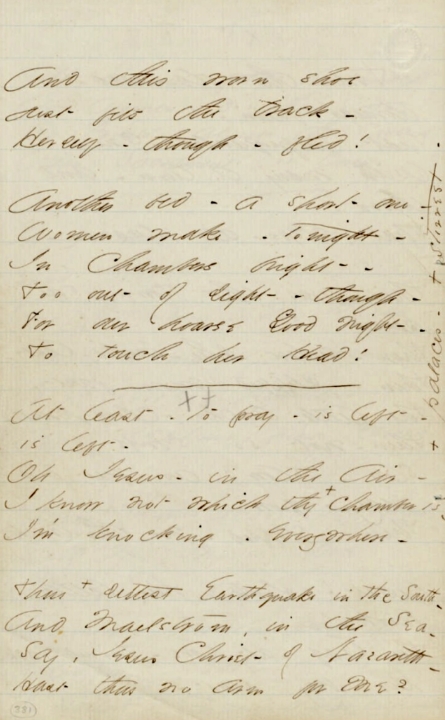 And this worn shoe
Just fits the track -
Herself - though - fled!
Another bed - a short one
Women make - tonight -
In Chambers bright - -
Too out of sight - though -
For our hoarse Good Night -
To touch her Head!
At least - to pray - is left -
is left -
Oh Jesus - in the Air -
I know not which thy + chamber is -
I'm knocking - everywhere -
Thou + settest Earthquake in the South -
And Maelstrom, in the Sea -
Say, Jesus Christ of Nazareth -
Hast thou no Arm for Me?
+ palaces - + stirrest -